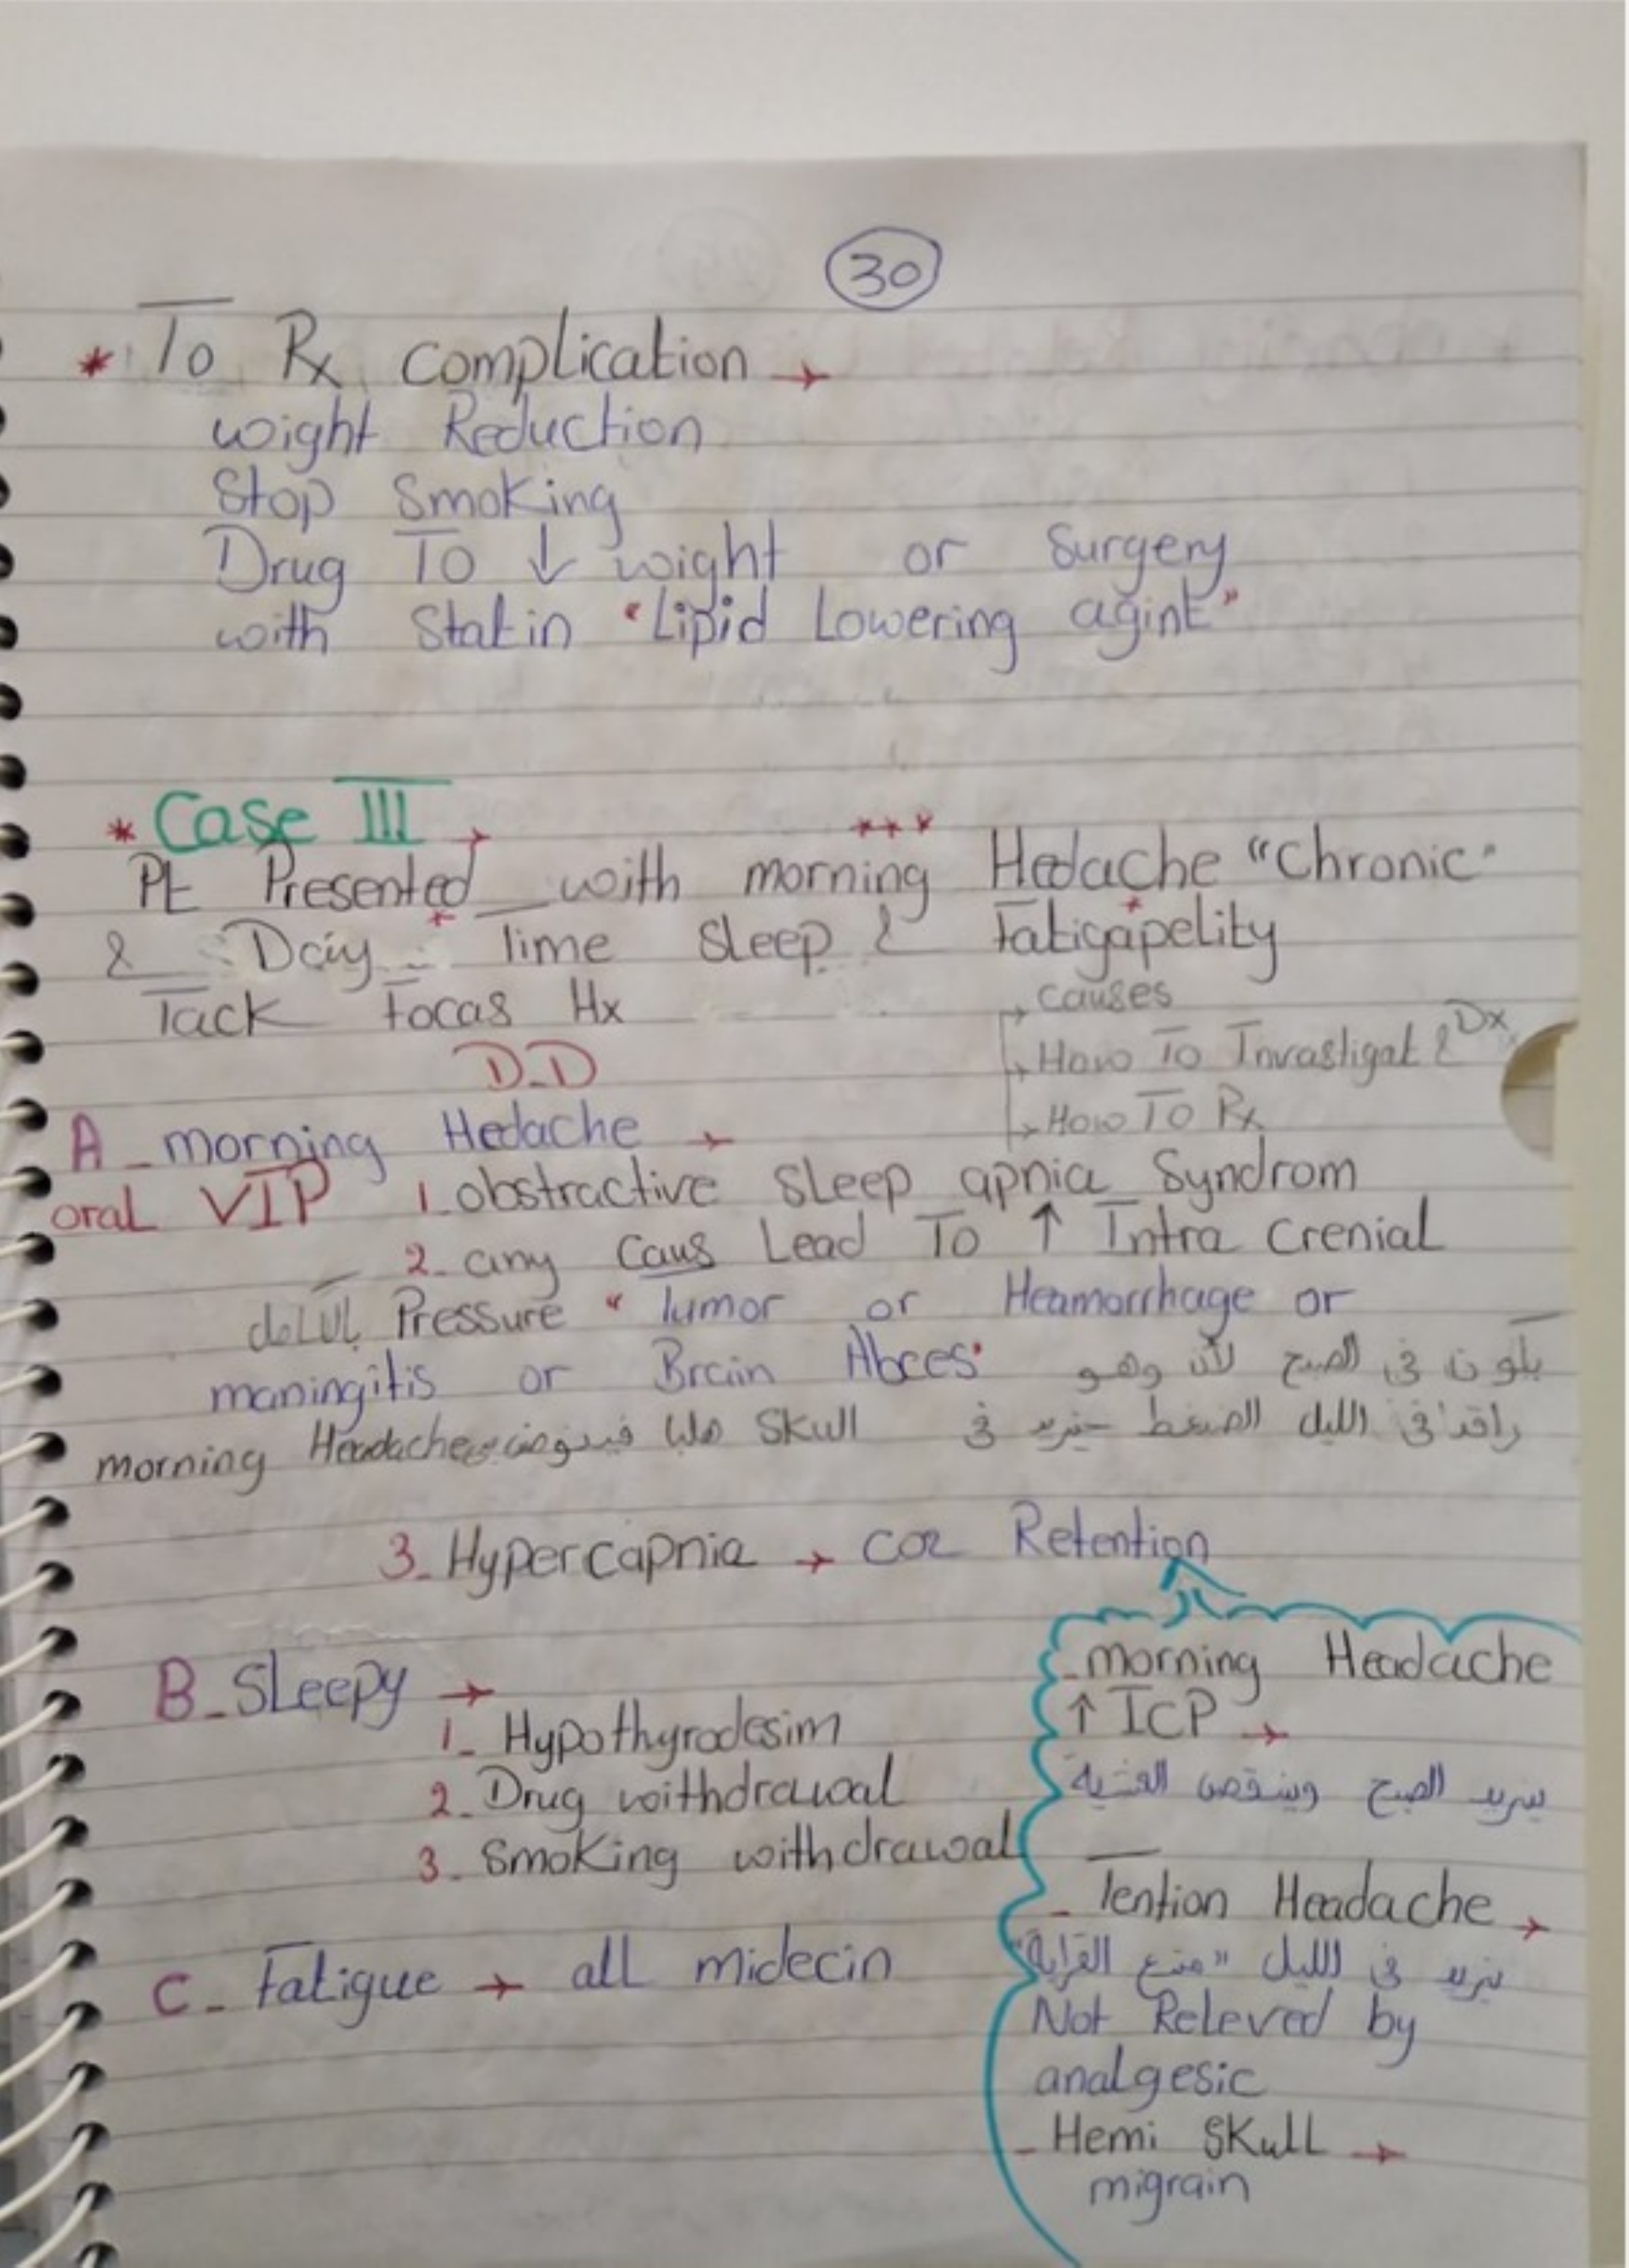 30
* To Rx complication →
wight Reduction
Stop Smoking
Drug To ↓ wight or Surgery
with Statin "Lipid Lowering agint"
* Case III →
***
Pt Presented with morning Hedache "Chronic"
& Day * Time Sleep & Fatigapelity
Tack Focas Hx
→ causes
→ How To Invastigat & Dx
→ How To Rx
D.D
A - morning Hedache →
oral VIP 1. obstractive Sleep apnia Syndrom
2. any Caus Lead To ↑ Intra Crenial
Pressure " Tumor or Heamorrhage or
maningitis or Brain Abces" يكون في الصبح لأن وهو
راقد في الليل الضغط يزيد في Skull
morning Headache
3. Hypercapnia → CO2 Retention
B - Sleepy →
1. Hypothyrodesim
2. Drug withdrawal
3. Smoking withdrawal
C - Fatigue → all midecin
- morning Headache
↑ ICP →
يزيد الصبح وينقص العشية
- Tention Headache →
يزيد في الليل "
Not Releved by
analgesic
- Hemi Skull →
migrain